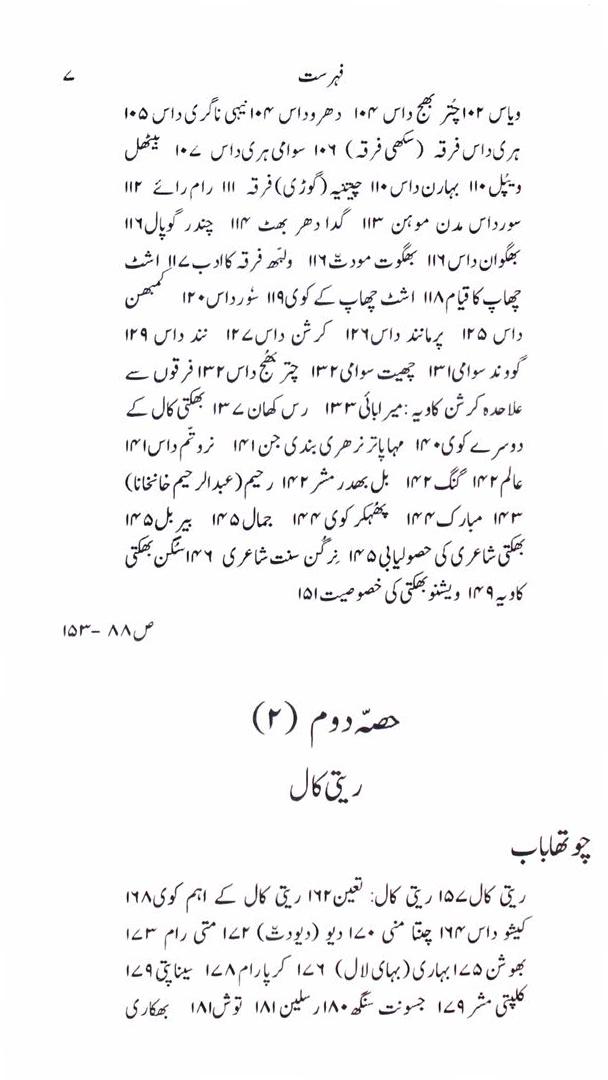 فہرست ۷
ویاس ۱۰۲ چُتر بھج داس ۱۰۴ دھروداس ۱۰۴ نیہی ناگری داس ۱۰۵
ہری داس فرقہ (سکھی فرقہ) ۱۰۶ سوامی ہری داس ۱۰۷ بیٹھل
وپُل ۱۱۰ بہارن داس ۱۱۰ چیتنیہ (گوڑی) فرقہ ۱۱۱ رام رائے ۱۱۲
سورداس مدن موہن ۱۱۳ گدا دھر بھٹ ۱۱۴ چندر گوپال ۱۱۶
بھگوان داس ۱۱۶ بھگوت مودتّ ۱۱۶ ولبھ فرقہ کا ادب ۱۱۷ اشٹ
چھاپ کا قیام ۱۱۸ اشٹ چھاپ کے کوی ۱۱۹ سُورداس ۱۲۰ کمبھن
داس ۱۲۵ پرمانند داس ۱۲۶ کرشن داس ۱۲۷ نند داس ۱۲۹
گووند سوامی ۱۳۱ چھیت سوامی ۱۳۲ چتر بھُج داس ۱۳۲ فرقوں سے
علاحدہ کرشن کاویہ: میرابائی ۱۳۳ رس کھان ۱۳۷ بھکتی کال کے
دوسرے کوی ۱۴۰ مہاپاتر نرھری بندی جن ۱۴۱ نروتّم داس ۱۴۱
عالم ۱۴۲ گنگ ۱۴۲ بل بھدر مشر ۱۴۲ رحیم (عبدالرحیم خانخانا)
۱۴۳ مبارک ۱۴۴ پھُہکر کوی ۱۴۴ جمال ۱۴۵ بیربل ۱۴۵
بھکتی شاعری کی حصولیابی ۱۴۵ نِرگُن سنت شاعری ۱۴۶ سَگُن بھکتی
کاویہ ۱۴۹ ویشنو بھکتی کی خصوصیت ۱۵۱
ص ۸۸ -۱۵۳
حصّہ دوم (۲)
ریتی کال
چوتھا باب
ریتی کال ۱۵۷ ریتی کال: تعین ۱۶۲ ریتی کال کے اہم کوی ۱۶۸
کیشو داس ۱۶۴ چنتا منی ۱۷۰ دیو (دیودتّ) ۱۷۲ متی رام ۱۷۳
بھوشن ۱۷۵ بہاری (بہای لال) ۱۷۶ کرپارام ۱۷۸ سیناپتی ۱۷۹
کلپتی مشر ۱۷۹ جسونت سنگھ ۱۸۰ رسلین ۱۸۱ توش ۱۸۱ بھکاری